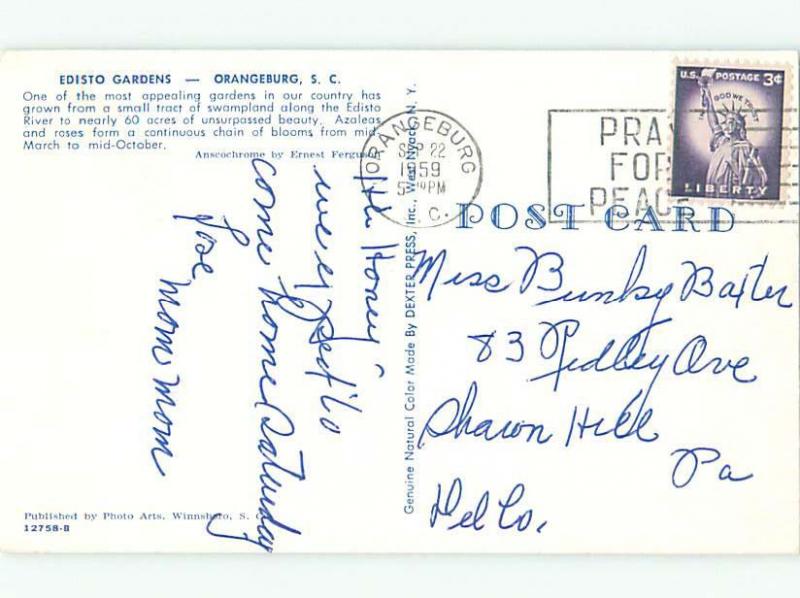 EDISTO GARDENS — ORANGEBURG, S. C.
One of the most appealing gardens in our country has
grown from a small tract of swampland along the Edisto
River to nearly 60 acres of unsurpassed beauty. Azaleas
and roses form a continuous chain of blooms from mid-
March to mid-October.
Anscochrome by Ernest Ferguson
Hi Honey
we expect to
come home Saturday
Love
Mom Mom
Published by Photo Arts, Winnsboro, S. C.
12758-B
Genuine Natural Color Made By DEXTER PRESS, Inc., West Nyack, N. Y.
ORANGEBURG
SEP 22
1959
PM
S. C.
PRAY
FOR
PEACE
U.S. POSTAGE 3¢
IN GOD WE TRUST
LIBERTY
POST CARD
Miss Bunky Baxter
83 Ridley Ave
Sharon Hill
Pa
Del Co.